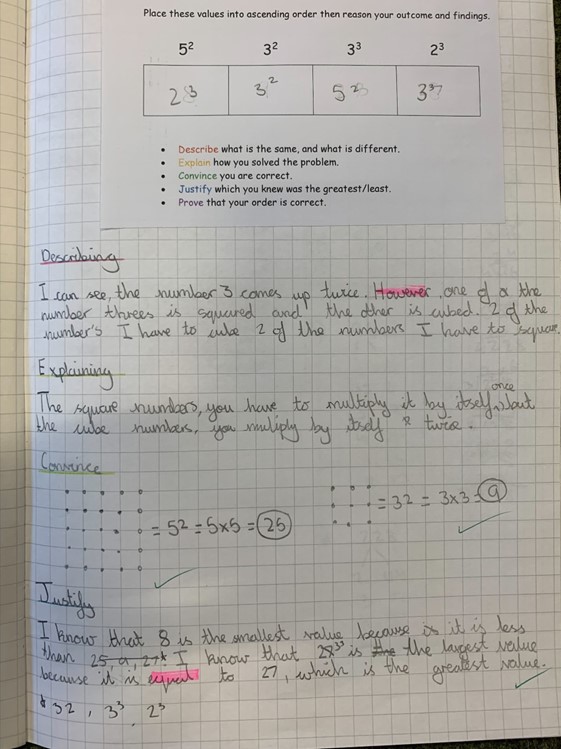 Place these values into ascending order then reason your outcome and findings.
5² 3² 3³ 2³
2³ 3² 5² 3³
• Describe what is the same, and what is different.
• Explain how you solved the problem.
• Convince you are correct.
• Justify which you knew was the greatest/least.
• Prove that your order is correct.
Describing
I can see, the number 3 comes up twice. However, one of the
number threes is squared and the other is cubed. 2 of the
number's I have to cube 2 of the numbers I have to square.
Explaining
The square numbers, you have to multiply it by itself once, but
the cube numbers, you muliply by itself twice.
Convince
= 5² = 5x5 = 25
= 3² = 3x3 = 9
Justify
I know that 8 is the smallest value because it is less
than 25, 9, 27. I know that 3³ is the largest value
because it is equal to 27, which is the greatest value.
3², 3³, 2³